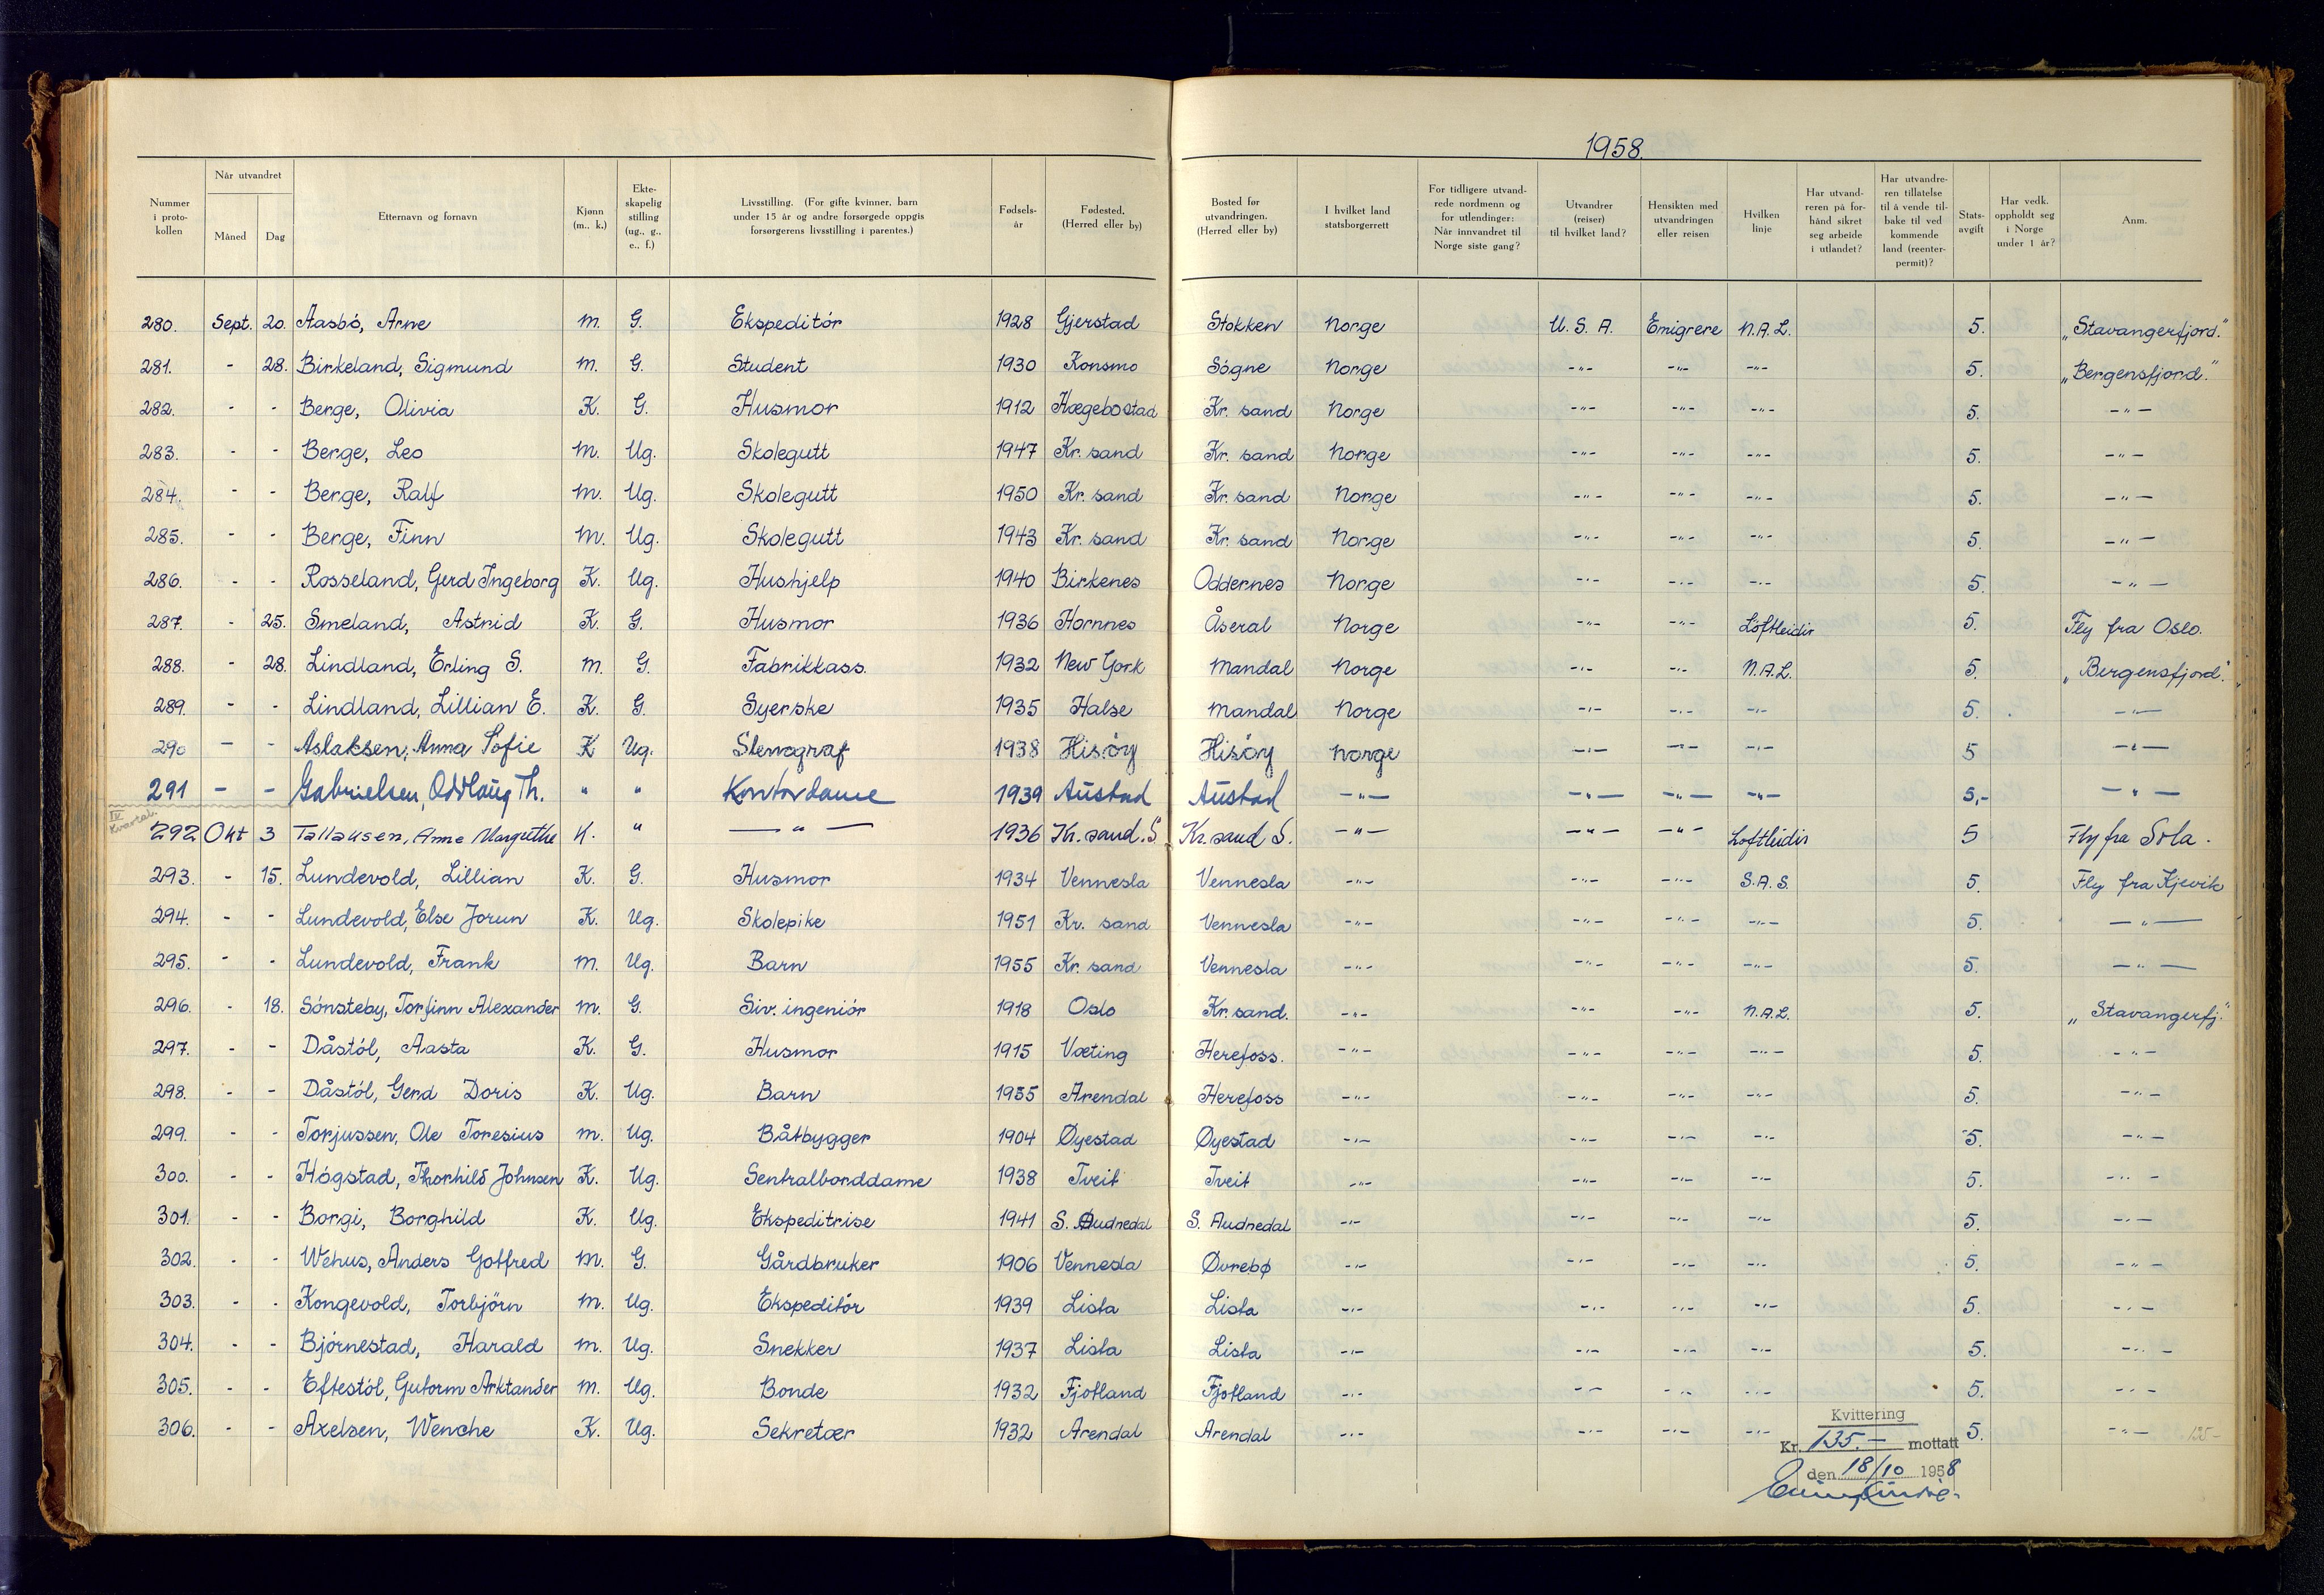 1958.
Nummer i proto-kollen | Når utvandret Måned | Dag | Etternavn og fornavn | Kjønn (m., k.) | Ekte-skapelig stilling (ug., g., e., f.) | Livsstilling. (For gifte kvinner, barn under 15 år og andre forsørgede oppgis forsørgerens livsstilling i parentes.) | Fødsels-år | Fødested. (Herred eller by) | Bosted før utvandringen. (Herred eller by) | I hvilket land statsborgerrett | For tidligere utvand-rede nordmenn og for utlendinger: Når innvandret til Norge siste gang? | Utvandrer (reiser) til hvilket land? | Hensikten med utvandringen eller reisen | Hvilken linje | Har utvand-reren på for-hånd sikret seg arbeide i utlandet? | Har utvandre-ren tillatelse til å vende til-bake til ved kommende land (reenter-permit)? | Stats-avgift | Har vedk. oppholdt seg i Norge under 1 år? | Anm.
280. Sept. 20. Aasbó, Arne m. G. Ekspeditór 1928 Gjerstad Stokken Norge U.S.A. Emigrere N.A.L. 5. „Stavangerfjord."
281. - 28. Birkeland, Sigmund m. G. Student 1930 Konsmo Sógne Norge -"- -"- -"- 5. „Bergensfjord."
282. - - Berge, Olivia K. G. Husmor 1912 Hægebostad Kr. sand Norge -"- -"- -"- 5. -"-
283. - - Berge, Leo m. Ug. Skolegutt 1947 Kr. sand Kr. sand Norge -"- -"- -"- 5. -"-
284. - - Berge, Ralf m. Ug. Skolegutt 1950 Kr. sand Kr. sand Norge -"- -"- -"- 5. -"-
285. - - Berge, Finn m. Ug. Skolegutt 1943 Kr. sand Kr. sand Norge -"- -"- -"- 5. -"-
286. - - Rosseland, Gerd Ingeborg K. Ug. Hushjelp 1940 Birkenes Oddernes Norge -"- -"- -"- 5. -"-
287. - 25. Smeland, Astrid K. G. Husmor 1936 Hornnes Åseral Norge -"- -"- Lóftleidir 5. Fly fra Oslo.
288. - 28. Lindland, Erling S. m. G. Fabrikkass. 1932 New York Mandal Norge -"- -"- N.A.L. 5. „Bergensfjord."
289. - - Lindland, Lillian E. K. G. Syerske 1935 Halse Mandal Norge -"- -"- -"- 5. -"-
290 - - Aslaksen, Anna Sofie K Ug. Stenograf 1938 Hisóy Hisóy Norge -"- -"- -"- 5 -"-
291 - - Gabrielsen, Oddlaug Th. " " Kontordame 1939 Austad Austad -"- -"- -"- -"- 5,- -"-
IV Kvartal.
292 Okt 3 Tallaksen, Anne Margrethe K. " -"- 1936 Kr. sand. S Kr. sand S. -"- -"- -"- Loftleidir 5 Fly fra Sola.
293. - 15. Lundevold, Lillian K. G. Husmor 1934 Vennesla Vennesla -"- -"- -"- S.A.S. 5. Fly fra Kjevik
294. - - Lundevold, Else Jorun K. Ug. Skolepike 1951 Kr. sand Vennesla -"- -"- -"- -"- 5. -"-
295. - - Lundevold, Frank m. Ug. Barn 1955 Kr. sand Vennesla -"- -"- -"- -"- 5. -"-
296. - 18. Sónsteby, Torfinn Alexander m. G. Siv. ingeniór 1918 Oslo Kr. sand. -"- -"- -"- N.A.L. 5. „Stavangerfj."
297. - - Dåstól, Aasta K. G. Husmor 1915 Væting Herefoss. -"- -"- -"- -"- 5. -"-
298. - - Dåstól, Gerd Doris K. Ug. Barn 1955 Arendal Herefoss -"- -"- -"- -"- 5. -"-
299. - - Torjussen, Ole Toresius m. Ug. Båtbygger 1904 Øyestad Øyestad -"- -"- -"- -"- 5. -"-
300. - - Hógstad, Thorhild Johnsen K. Ug. Sentralborddame 1938 Tveit Tveit -"- -"- -"- -"- 5. -"-
301. - - Borgi, Borghild K. Ug. Ekspeditrise 1941 S. Audnedal S. Audnedal -"- -"- -"- -"- 5. -"-
302. - - Wehus, Anders Gotfred m. G. Gårdbruker 1906 Vennesla Øvrebø -"- -"- -"- -"- 5. -"-
303. - - Kongevold, Torbjörn m. Ug. Ekspeditór 1939 Lista Lista -"- -"- -"- -"- 5. -"-
304. - - Bjórnestad, Harald m. Ug. Snekker 1937 Lista Lista -"- -"- -"- -"- 5. -"-
305. - - Eftestól, Gutorm Arktander m. Ug. Bonde 1932 Fjotland Fjotland -"- -"- -"- -"- 5. -"-
306. - - Axelsen, Wenche K. Ug. Sekretær 1932 Arendal Arendal -"- -"- -"- -"- 5. -"- 135-
Kvittering
Kr. 135.- mottatt
den 18/10 1958